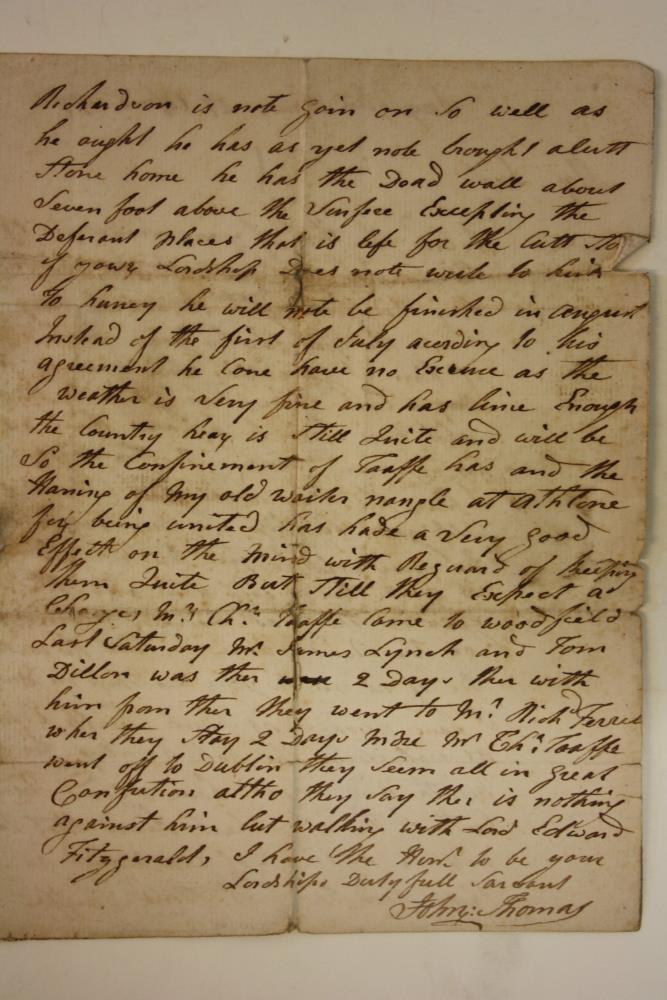 Richardson is note goin on so well as
he ought he has as yet note brought a Cutt
Stone home he has the Dead wall about
Seven foot above the Surfece Excepting the
Deferant Places that is left for the Cutt Sto
if youre Lordship Does note write to him
To hurrey he will note be finished in August
Instead of the first of July acording to his
agreement he Cone have no Excuse as the
weather is Very fine and has lime Enough
the Country hear is Still Quite and will be
So the Confinement of Taaffe has and the
Haning of My old waiter nangle at Athlone
for being united has hade a Very good
Effect on the Mind with Reguard of keeping
them Quite But Still they Expect a
Mr. Chr. Taaffe Came to Woodfield
Last Saturday Mr. James Lynch and Tom
Dillon was ther 2 Days ther with
him from ther they went to Mr. Richd Ferrel
wher they Stay 2 Days More Mr Chr. Taaffe
went off to Dublin they Seem all in great
Confution altho they Say ther is nothing
against him but walking with Lord Edward
Fitzgerald, I have the Honr. to be your
Lordships Dutyfull Sarvant
John: Thomas